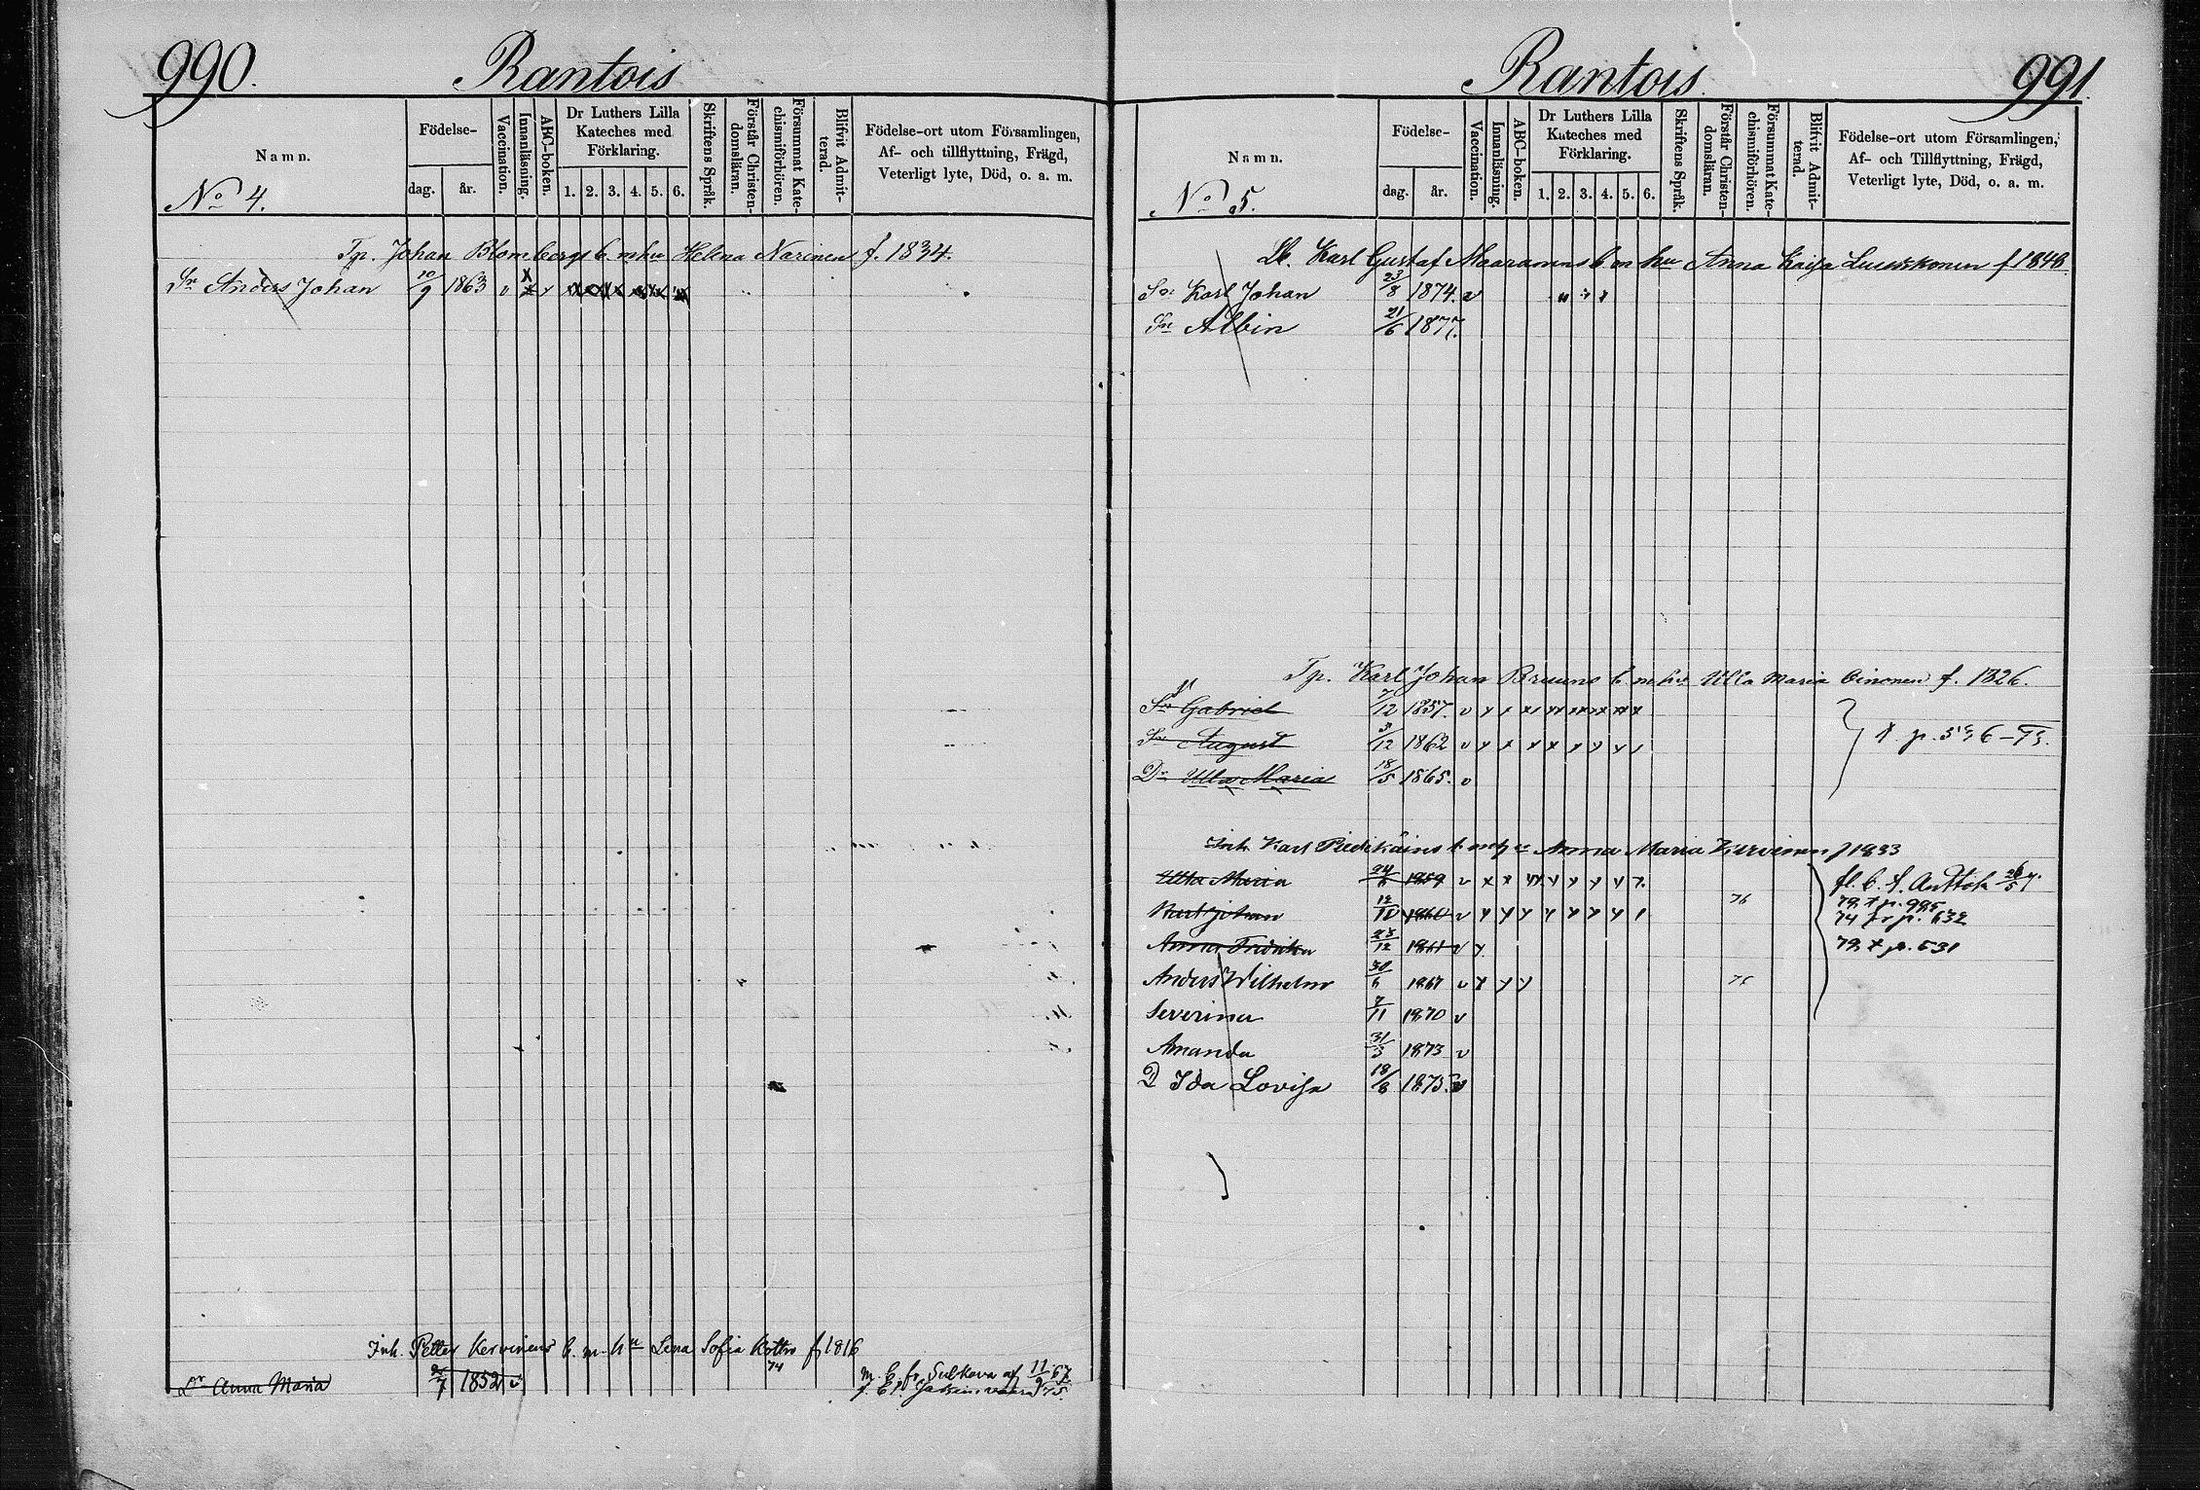 990.
Rantois
Namn.
Födelse-
dag.
år.
Vaccination.
Innanläsning.
ABC-boken.
Dr Luthers Lilla
Kateches med
Förklaring.
1. 2. 3. 4. 5. 6.
Skriftens Språk.
Förstår Christen-
domsläran.
Försummat Kate-
chismiförhören.
Blifvit Admit-
terad.
Födelse-ort utom Församlingen,
Af- och tillflyttning, Frägd,
Veterligt lyte, Död, o. a. m.
No 4.
Tp. Johan Blombergs b. m hu Helena Narinen f. 1834.
Sn Anders Johan 10/9 1863 v
Inh. Petter Kervinens b. m. hu Lena Sofia f 1816
74
Dr Anna Maria 2/7 1852 v
m. b. fr. Sulkava af 11/9 67
75.
Rantois.
991.
Namn.
Födelse-
dag.
år.
Vaccination.
Innanläsning.
ABC-boken.
Dr Luthers Lilla
Kateches med
Förklaring.
1. 2. 3. 4. 5. 6.
Skriftens Språk.
Förstår Christen-
domsläran.
Försummat Kate-
chismiförhören.
Blifvit Admit-
terad.
Födelse-ort utom Församlingen,
Af- och Tillflyttning, Frägd,
Veterligt lyte, Död, o. a. m.
No 5.
Karl Gustaf b m hu Anna Kaisa f 1848.
Sn Karl Johan 23/8 1874. v
Sn Albin 21/6 1877.
Tp. Karl Johan Bruuns b. m hu Ulla Maria Oinonen f. 1826.
Sn Gabriel 7/12 1857. v
Sn August 3/12 1862 v
Dr Ulla Maria 18/5 1865. v
Inh Karl b. m hu Anna Maria Kervinen f 1833
Ulla Maria 24/6 1859 v
Karl Johan 12/10 1860 v
76
p. 985
74 p. 632
Anna Fredrika 23/12 1861 v
p. 631
Anders Wilhelm 30/6 1867 v
Severina 7/11 1870 v
Amanda 31/3 1873 v
D Ida Lovisa 18/8 1875. v